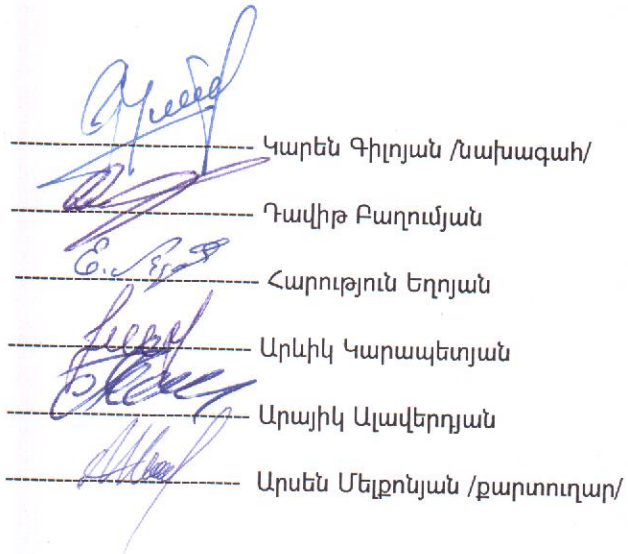 -------------------------- Կարեն Գիլոյան /նախագահ/
-------------------------- Դավիթ Բաղումյան
-------------------------- Հարություն Եղոյան
-------------------------- Արևիկ Կարապետյան
-------------------------- Արայիկ Ալավերդյան
-------------------------- Արսեն Մելքոնյան /քարտուղար/